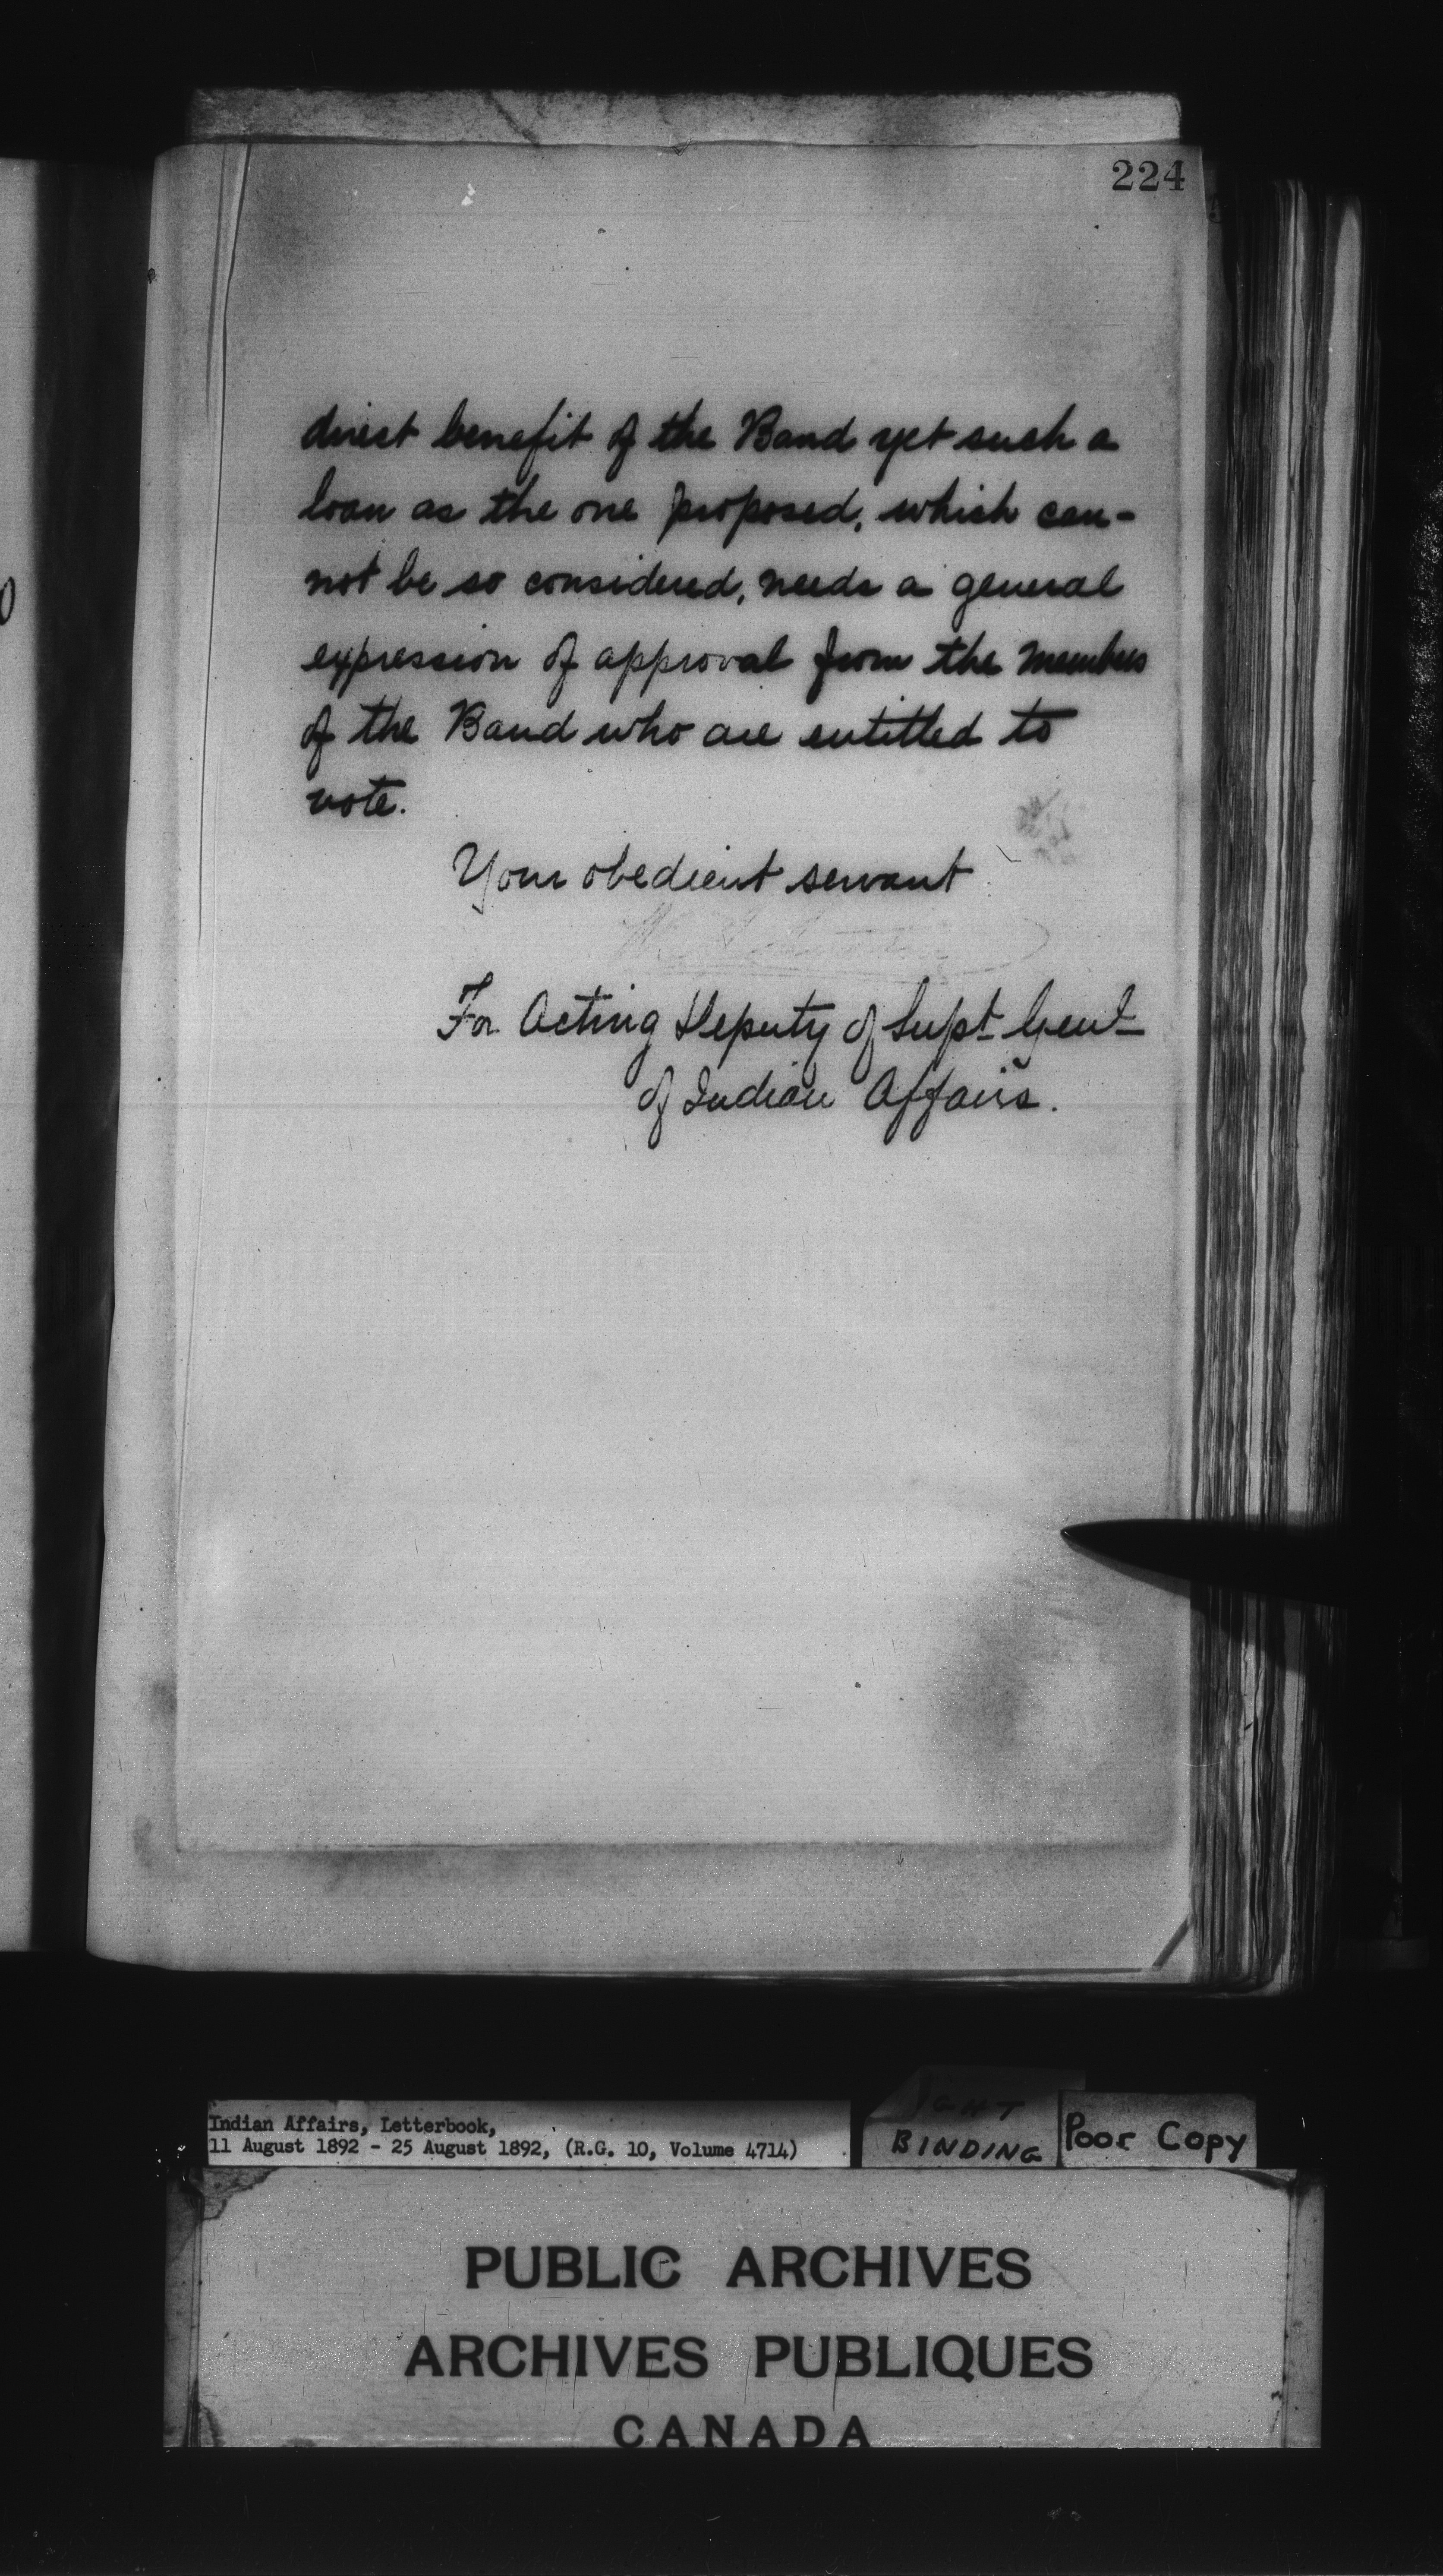 224
direct benefit of the Band yet such a
loan as the one proposed, which can-
not be so considered, needs a general
expression of approval from the members
of the Band who are entitled to
vote.
Your obedient servant
For Acting Deputy of Supt Genl
of Indian Affairs.
Indian Affairs, Letterbook,
11 August 1892 - 25 August 1892, (R.G. 10, Volume 4714)
BINDING
Poor Copy
PUBLIC ARCHIVES
ARCHIVES PUBLIQUES
CANADA